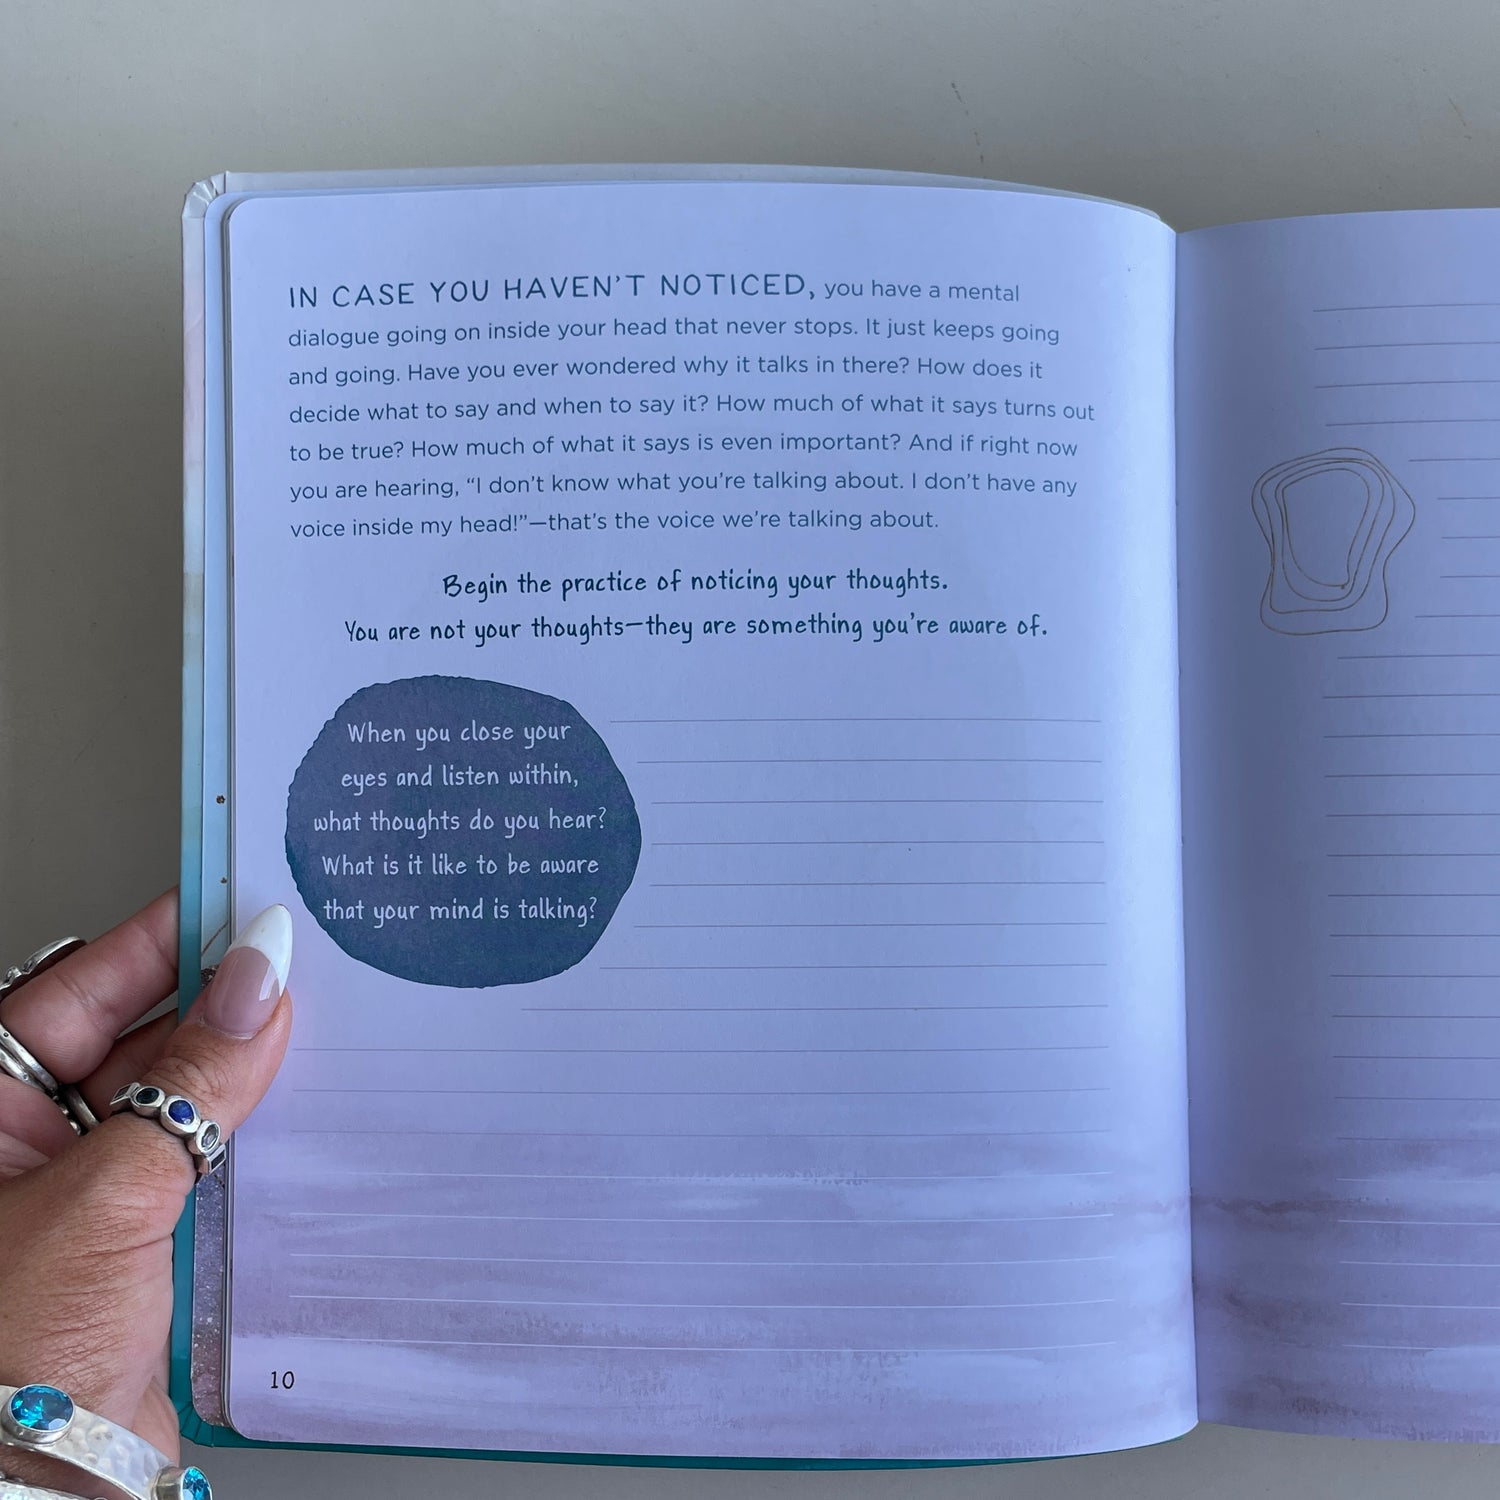 IN CASE YOU HAVEN'T NOTICED, you have a mental
dialogue going on inside your head that never stops. It just keeps going
and going. Have you ever wondered why it talks in there? How does it
decide what to say and when to say it? How much of what it says turns out
to be true? How much of what it says is even important? And if right now
you are hearing, “I don't know what you're talking about. I don't have any
voice inside my head!”—that's the voice we're talking about.
Begin the practice of noticing your thoughts.
You are not your thoughts—they are something you're aware of.
When you close your
eyes and listen within,
what thoughts do you hear?
What is it like to be aware
that your mind is talking?
10